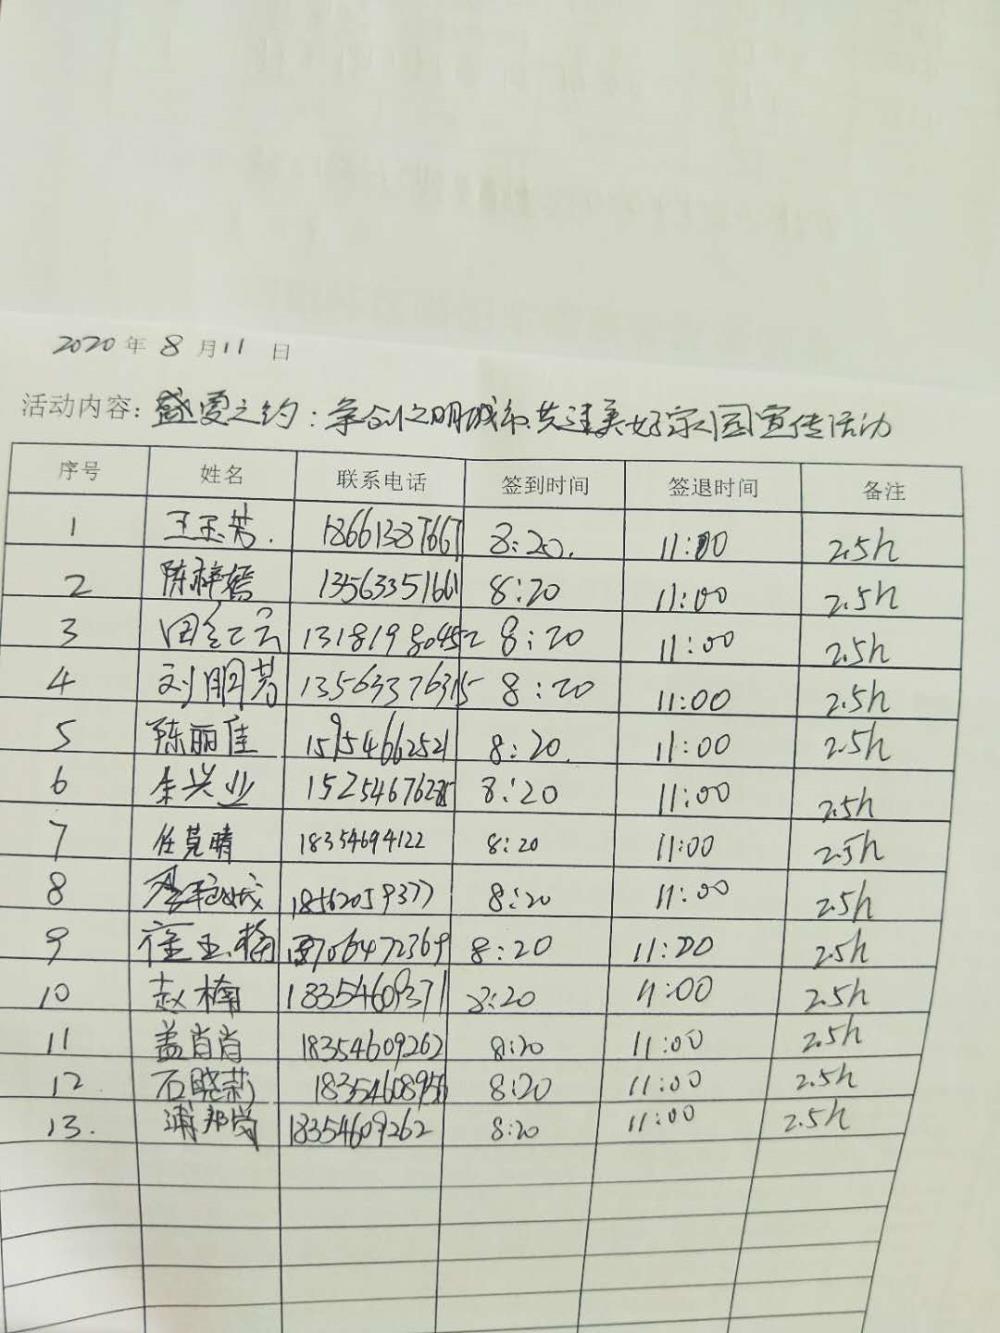 2020年8月11日
活动内容：盛爱之约：争创文明城市,共建美好家园宣传活动
序号 姓名 联系电话 签到时间 签退时间 备注
1 王玉芳. 18661387667 8:20. 11:00 2.5h
2 陈梓嫣 13563351661 8:20 11:00 2.5h
3 田红云 13181980452 8:20 11:00 2.5h
4 刘明芳 13563376315 8:20 11:00 2.5h
5 陈丽佳 15954662521 8:20. 11:00 2.5h
6 余兴业 8:20 11:00 2.5h
7 任莞晴 18354694122 8:20 11:00 2.5h
8 18562059377 8:20 11:00 2.5h
9 8:20 11:00 2.5h
10 赵楠 18354609371 8:20 11:00 2.5h
11 盖肖肖 18354609262 8:20 11:00 2.5h
12. 石晓莉 8:20 11:00 2.5h
13. 18354609262 8:20 11:00 2.5h